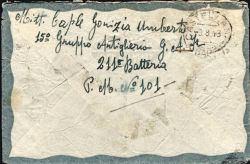 Mitt. Cap.le Gorizia Umberto
15° Gruppo Artiglieria G. a F.
211ª Batteria
P. M. N° 101 -